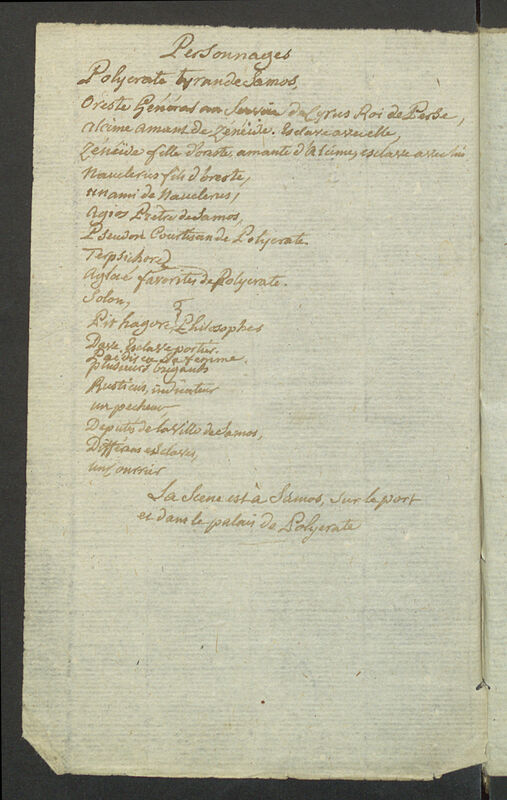 Personnages
Polycrate tyran de Samos,
Oreste Général au Service de Cyrus Roi de Perse,
Alcime amant de Zénéide. Esclave avec elle,
Zénéide fille d'oreste, amante d'Alcime, esclave avec lui
Nauclerus fils d'oreste,
un ami de Nauclerus,
Agios Prêtre de Samos,
Pseudon Courtisan de Polycrate.
Terpsichore
Aglaé favorites de Polycrate.
Solon,
Pithagore, Philosophes
Dave, Esclave portier.
sa femme.
plusieurs brigands
Rusticus,
un pecheur
Deputés de la Ville de Samos,
Différens esclaves,
un
La Scene est à Samos, sur le port
et dans le palais de Polycrate